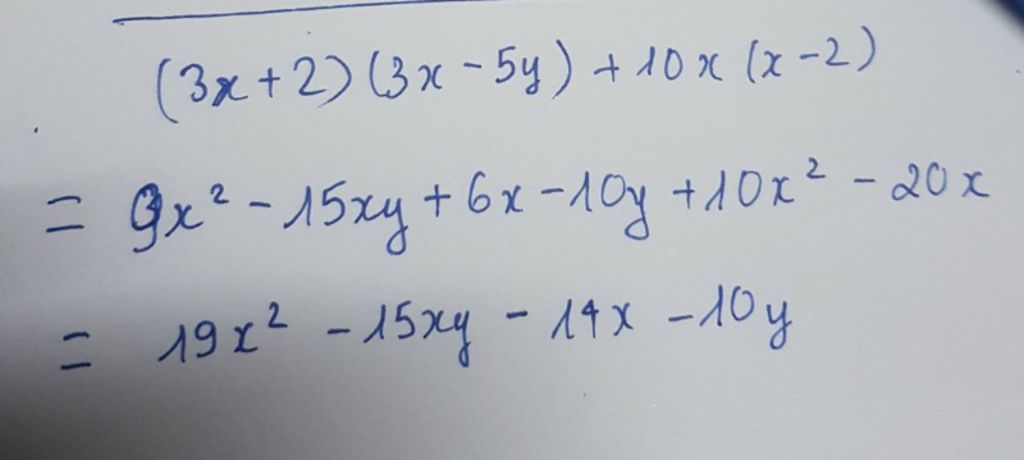 (3x+2)(3x-5y)+10x(x-2)
= 9x²-15xy+6x-10y+10x²-20x
= 19x²-15xy-14x-10y